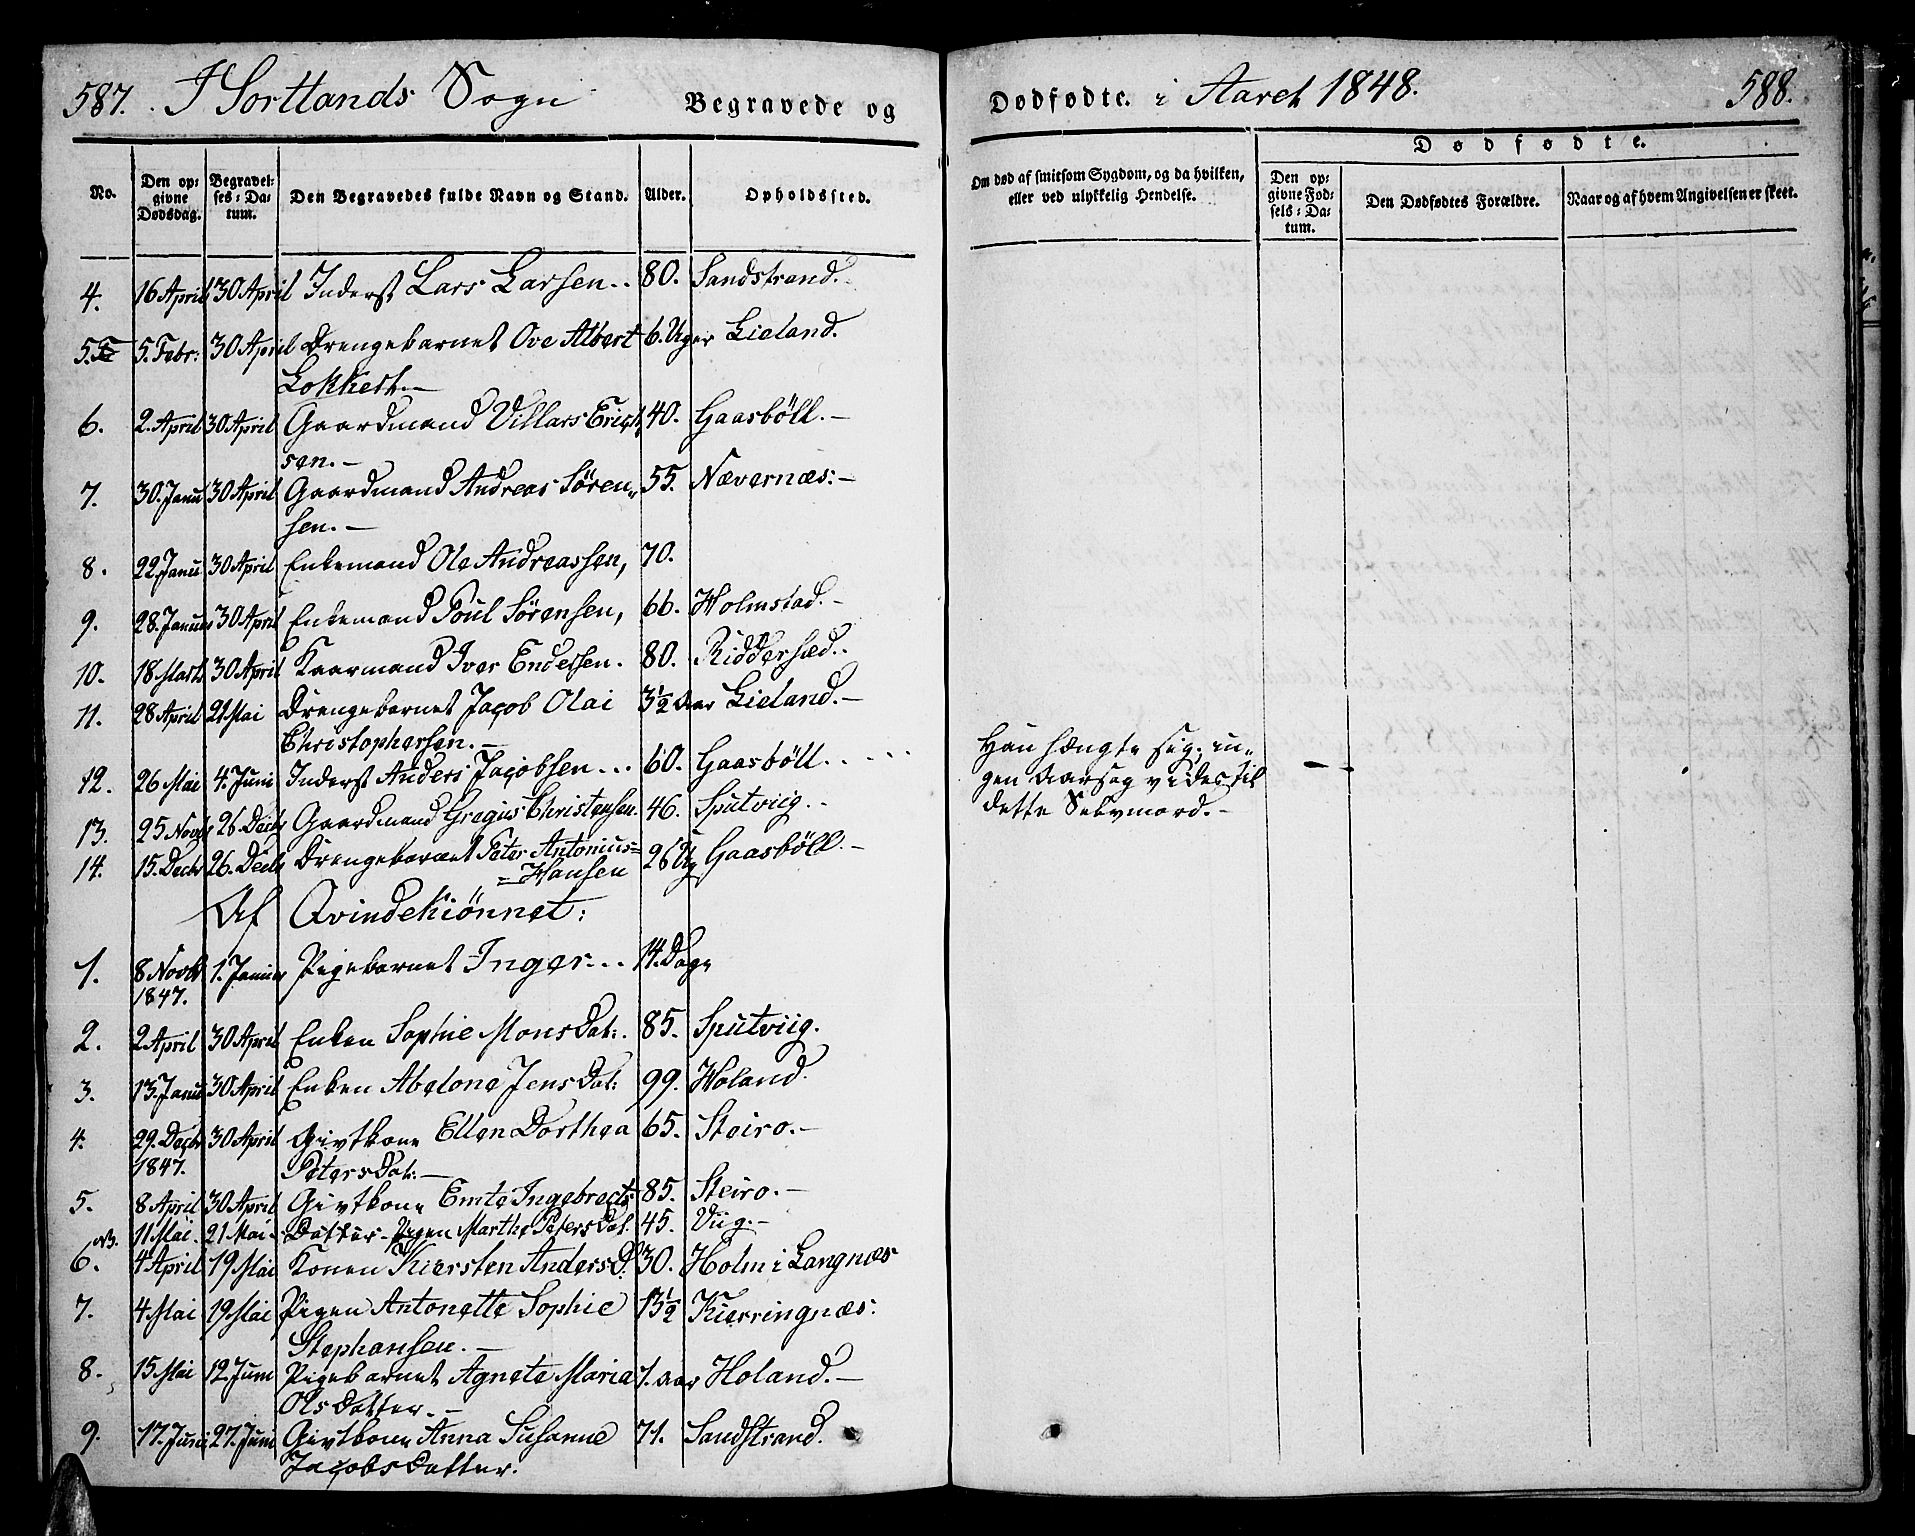 587. I Sortlands Sogn Begravede og
Dødfødte. i Aaret 1848. 588.
No. Den opgivne Dødsdag. Begravelses-Datum. Den Begravedes fulde Navn og Stand. Alder. Opholdssted.
Om død af smitsom Sygdom, og da hvilken, eller ved ulykkelig Hendelse.
Dødfødte.
Den opgivne Fødsels-Datum. Den Dødfødtes Forældre. Naar og af hvem Angivelsen er skeet.
4. 16 April 30 April Inderst Lars Larsen.. 80. Sandstrand.
5. 5. Febr: 30 April Drengebarnet Ove Albert 6. Uger Lieland.
Lokkert.–
6. 2. April 30 April Gaardmand Villars Erich 40. Gaasböll.–
sen.–
7. 30. Janu 30 April Gaardmand Andreas Sören„ 55. Nævernæs:–
sen.–
8. 22 Janu 30 April Enkemand Ole Andreassen, 70.
9. 28. Januar 30 April Enkemand Poul Sörensen, 66. Holmstad.–
10. 18 Marts 30 April Kaarmand Iver Endresen. 80. Riddersæd..
11. 28 April 21 Mai Drengebarnet Jacob Olai 3½ Aar Lieland.–
Christophersen.–
12. 26 Mai 4. Juni Inderst Anders Jacobsen... 60. Gaasböll.....
Han hængte sig; in„
gen Aarsag vides til
dette Selvmord.–
13. 25 Novbr 26 Decbr Gaardmand Gregius Christensen. 46. Sputviig..
14. 15. Decbr 26. Decbr Drengebarnet Peter Antonius= 26 Ug Gaasböll.–
=Hansen
Af Qvindekiönnet:
1. 8 Novbr 1. Januar Pigebarnet Inger... 14. Dage
1847.
2. 2 April 30 April Enken Sophie MonsDat:. 85. Sputviig.
3. 13. Janu 30 April Enken Abelone JensDat: 99. Holand.
4. 29. Decbr 30 April Givtkone Ellen Dorthea 65. Steiro.–
1847. PetersDat:–
5. 8 April 30 April Givtkone Emte Ingebrects 85. Steiro.–
NB. 11 Mai. 21 Mai– Datter– Pigen Marthe PetersDat. 45. Viig.–
6. 4 April 19 Mai Konen Kiersten AndersD. 30. Holm i Langnæs
7. 4 Mai 19 Mai Pigen Antonette Sophie 13½ Kierringnæs:
Stephansen.–
8. 15 Mai 12. Juni Pigebarnet Agnete Maria 7. Aar Holand.–
OlsDatter.–
9. 17. Juni 27. Juni Givtkone Anna Susanne 71. Sandstrand.
JacobsDatter.